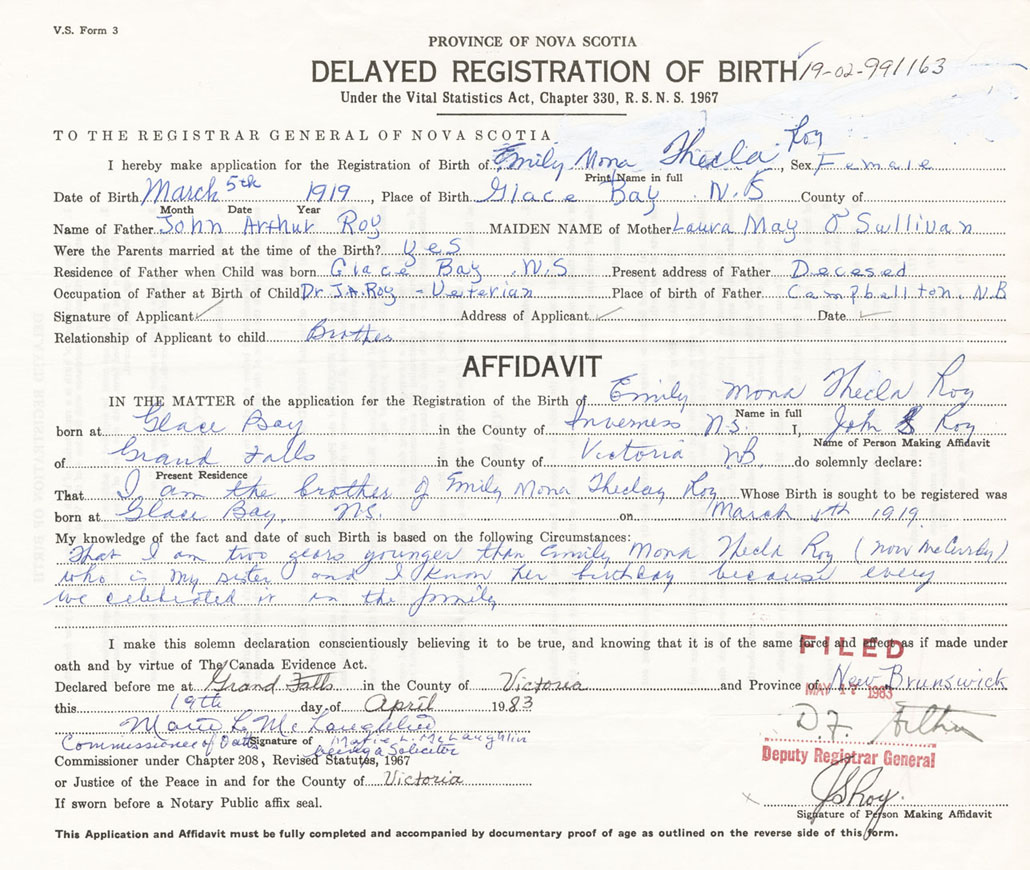 V.S. Form 3
PROVINCE OF NOVA SCOTIA
DELAYED REGISTRATION OF BIRTH 19-02-991163
Under the Vital Statistics Act, Chapter 330, R.S.N.S. 1967
TO THE REGISTRAR GENERAL OF NOVA SCOTIA
I hereby make application for the Registration of Birth of Emily Mona Thecla Roy, Sex Female
Print Name in full
Date of Birth March 5th 1919, Place of Birth Glace Bay N.S County of
Month Date Year
Name of Father John Arthur Roy MAIDEN NAME of Mother Laura May O'Sullivan
Were the Parents married at the time of the Birth? yes
Residence of Father when Child was born Glace Bay N.S Present address of Father Decesed
Occupation of Father at Birth of Child Dr J.A. Roy - Veterian Place of birth of Father Campbellton N.B
Signature of Applicant Address of Applicant Date
Relationship of Applicant to child Brother
AFFIDAVIT
IN THE MATTER of the application for the Registration of the Birth of Emily Mona Thecla Roy
Name in full
born at Glace Bay in the County of Inverness N.S. I, John S Roy
Name of Person Making Affidavit
of Grand Falls in the County of Victoria NB. do solemnly declare:
Present Residence
That I am the brother of Emily Mona Theclay Roy Whose Birth is sought to be registered was
born at Glace Bay, N.S. on March 5th 1919
My knowledge of the fact and date of such Birth is based on the following Circumstances:
That I am two years younger than Emily Mona Thecla Roy (now McCurdy)
who is my sister and I know her birthday because every
we celebrated it in the family
I make this solemn declaration conscientiously believing it to be true, and knowing that it is of the same force and effect as if made under
FILED
oath and by virtue of The Canada Evidence Act.
Declared before me at Grand Falls in the County of Victoria and Province of New Brunswick
MAY 17 1983
this 19th day of April 1983
Marie L. McLaughlin
D.F.
Commissioner of Oaths Signature of Marie L. McLaughlin
being a Solicitor
Deputy Registrar General
Commissioner under Chapter 208, Revised Statutes, 1967
or Justice of the Peace in and for the County of Victoria
JSRoy.
If sworn before a Notary Public affix seal.
Signature of Person Making Affidavit
This Application and Affidavit must be fully completed and accompanied by documentary proof of age as outlined on the reverse side of this form.